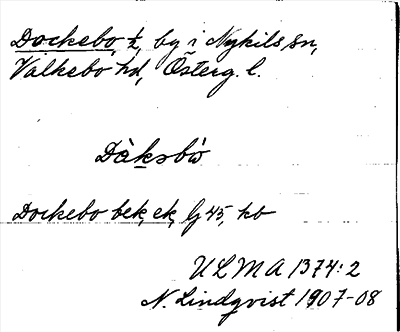 Dockebo, ½, by i Nykils sn,
Valkebo hd, Österg. l.
Dàksbò
Dockebo bek, ek, lj 45, kb
ULMA 1374:2
N. Lindqvist 1907-08